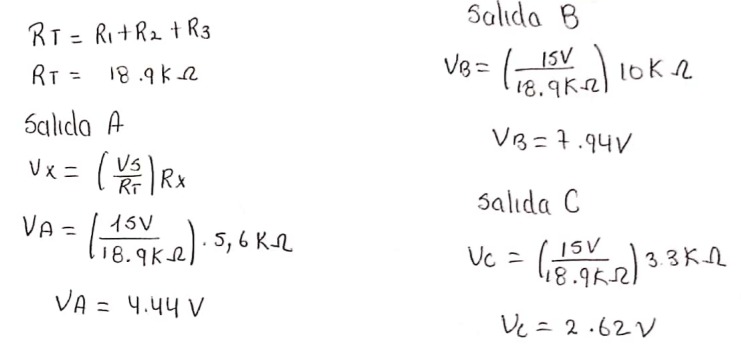 RT = R1 + R2 + R3
RT = 18.9KΩ
Salida A
Vx = (VS/RT) Rx
VA = (15V/18.9KΩ) . 5,6KΩ
VA = 4.44V
Salida B
VB = (15V/18.9KΩ) 10KΩ
VB = 7.94V
Salida C
VC = (15V/18.9KΩ) 3.3KΩ
VC = 2.62V